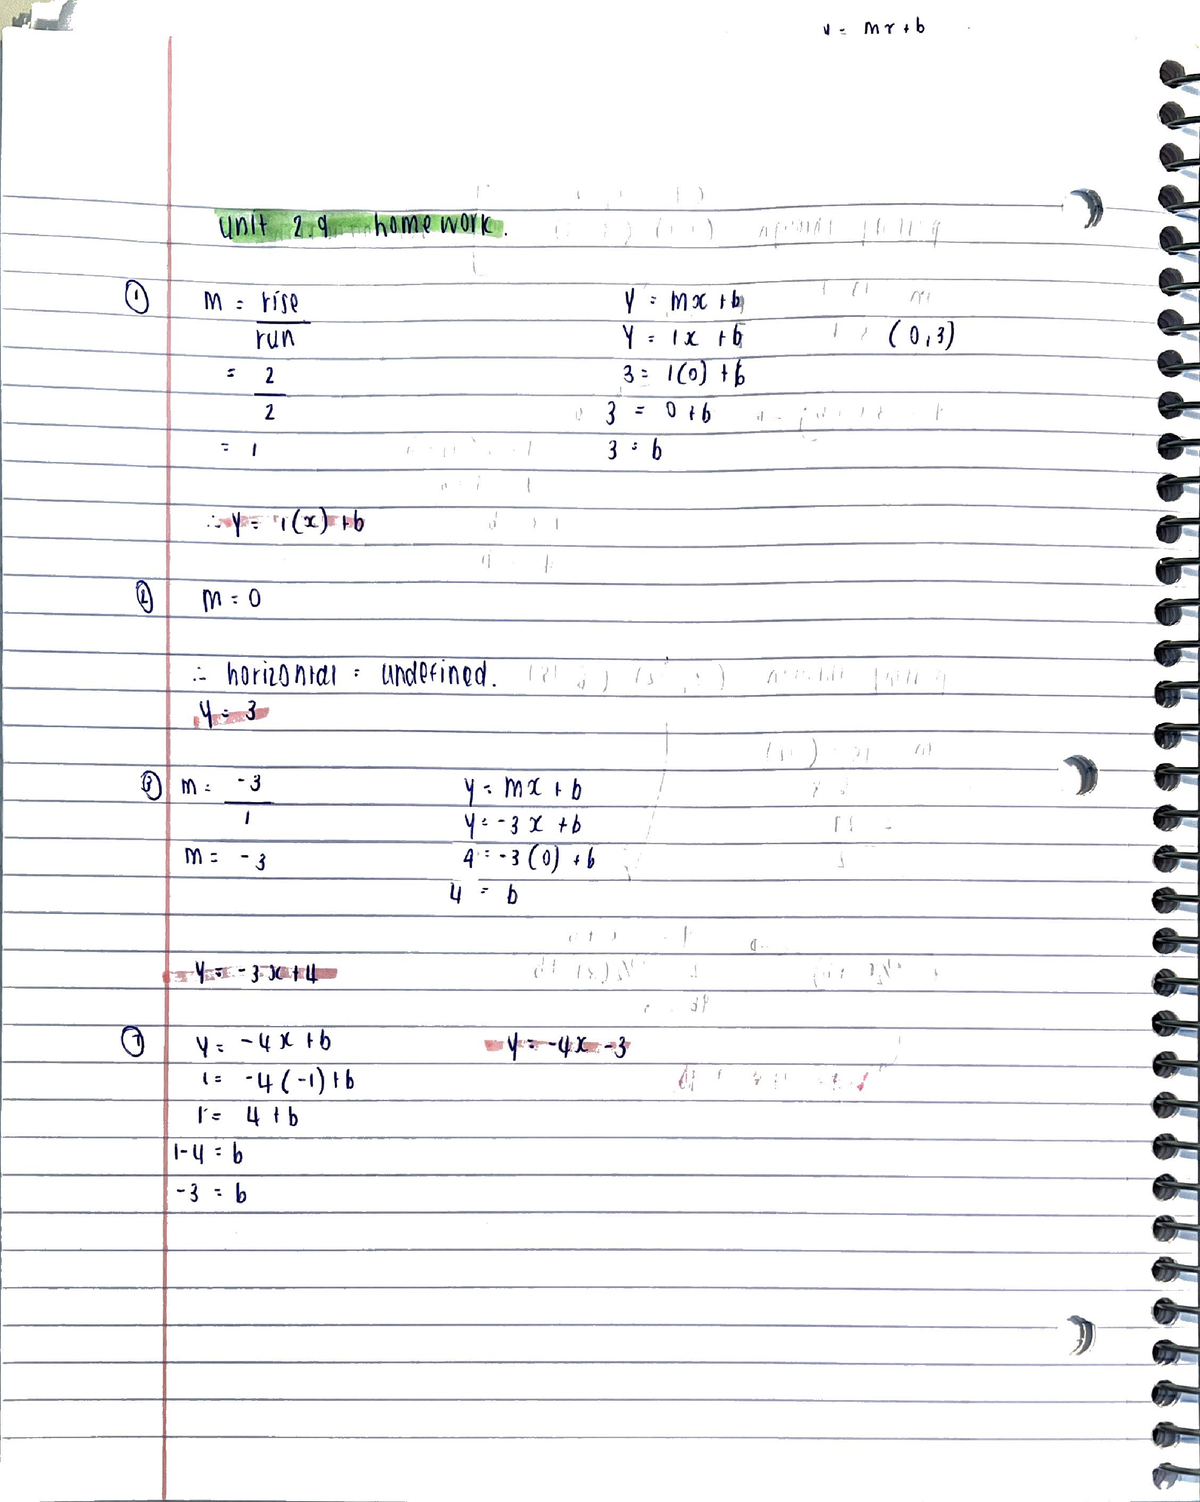 y = mx + b
unit 2.9 homework.
① m = rise
run
= 2
2
= 1
y = mx + b
y = 1x + b
(0,3)
3 = 1(0) + b
3 = 0 + b
3 = b
∴ y = 1(x) + b
② m = 0
∴ horizontal = undefined.
y = 3
③ m = -3
1
m = -3
y = mx + b
y = -3x + b
4 = -3(0) + b
4 = b
y = -3x + 4
⑦ y = -4x + b
1 = -4(-1) + b
1 = 4 + b
1-4 = b
-3 = b
y = -4x - 3